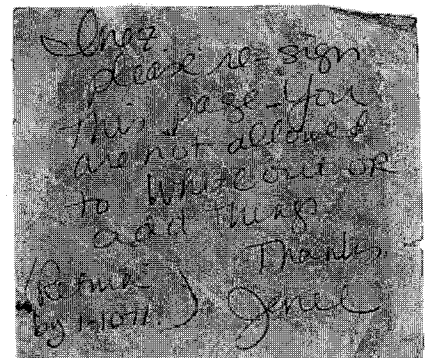 Inez
please re-sign
this page - You
are not allowed
to whiteout or
add things
Thanks,
(Return
by 1-10